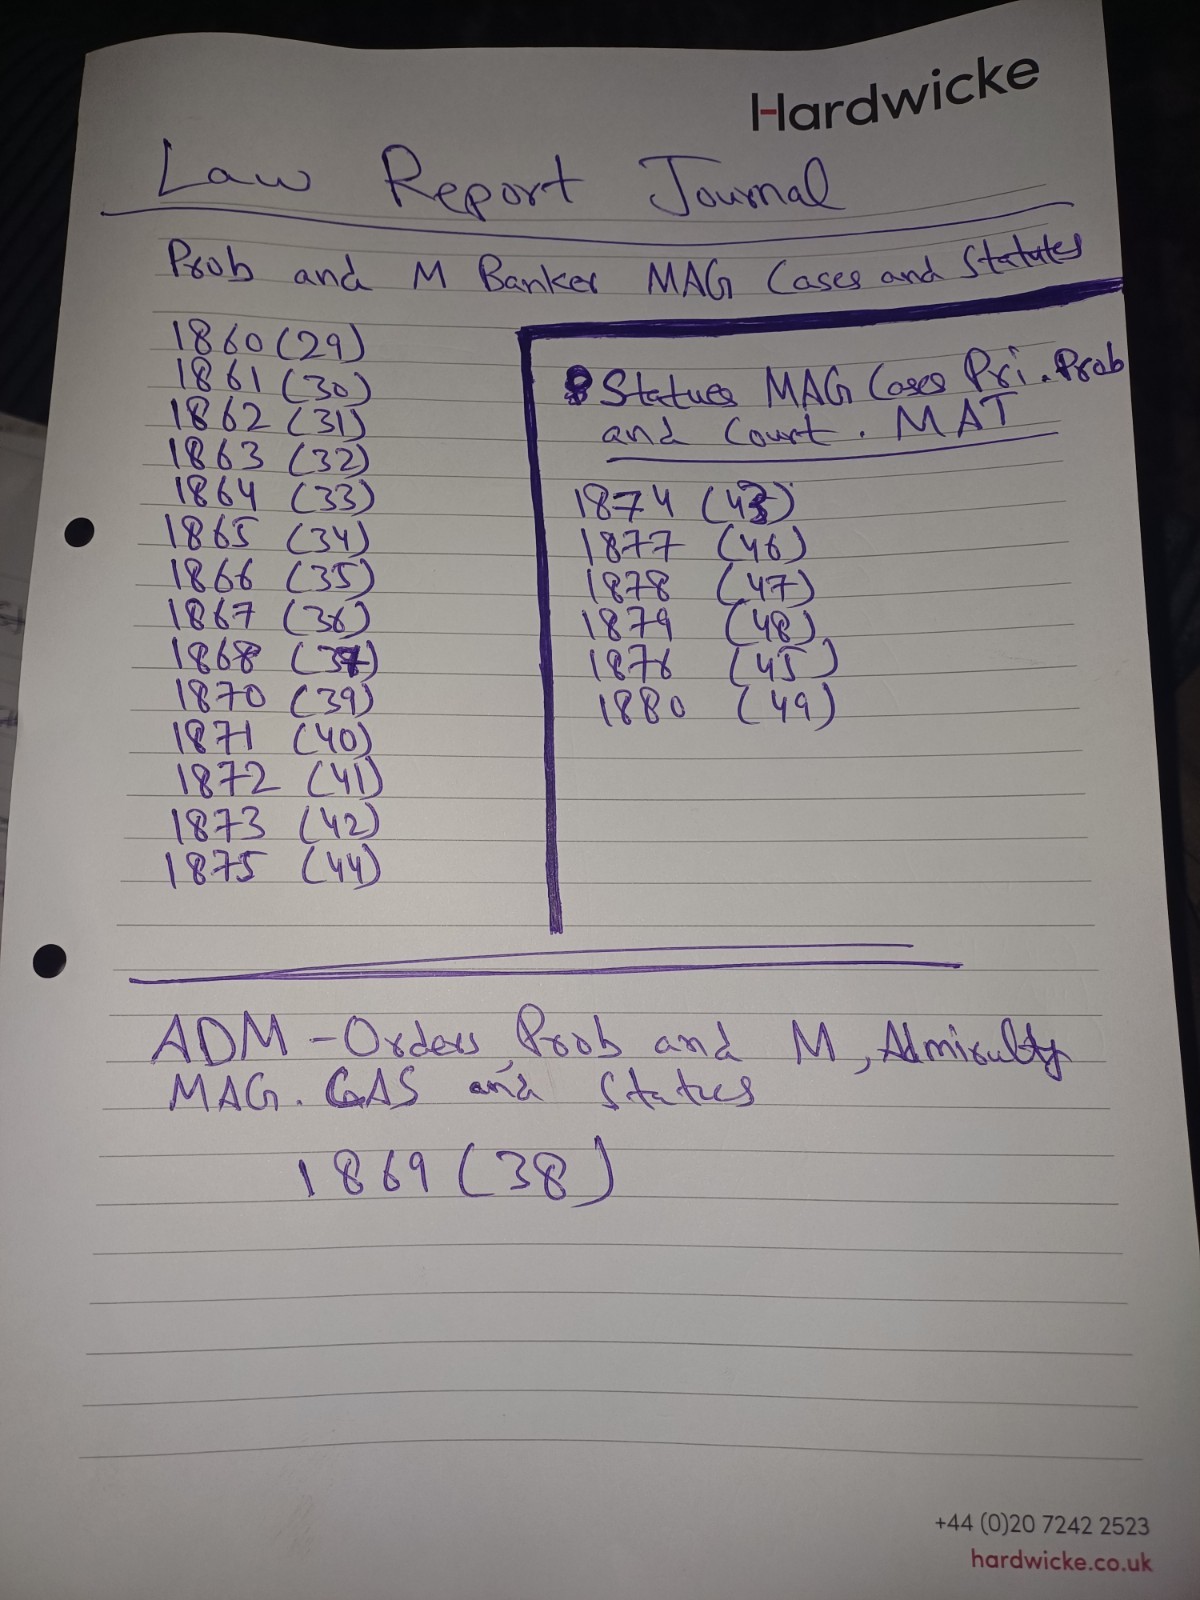 Hardwicke
Law Report Journal
Prob and M Banker MAG Cases and Statutes
1860 (29)
1861 (30)
1862 (31)
1863 (32)
1864 (33)
1865 (34)
1866 (35)
1867 (36)
1868 (37)
1870 (39)
1871 (40)
1872 (41)
1873 (42)
1875 (44)
Statues MAG Cases Pri. Prob
and Court. MAT
1874 (43)
1877 (46)
1878 (47)
1879 (48)
1876 (45)
1880 (49)
ADM - Orders, Prob and M, Admirulty
MAG. CAS and Statues
1869 (38)
+44 (0)20 7242 2523
hardwicke.co.uk